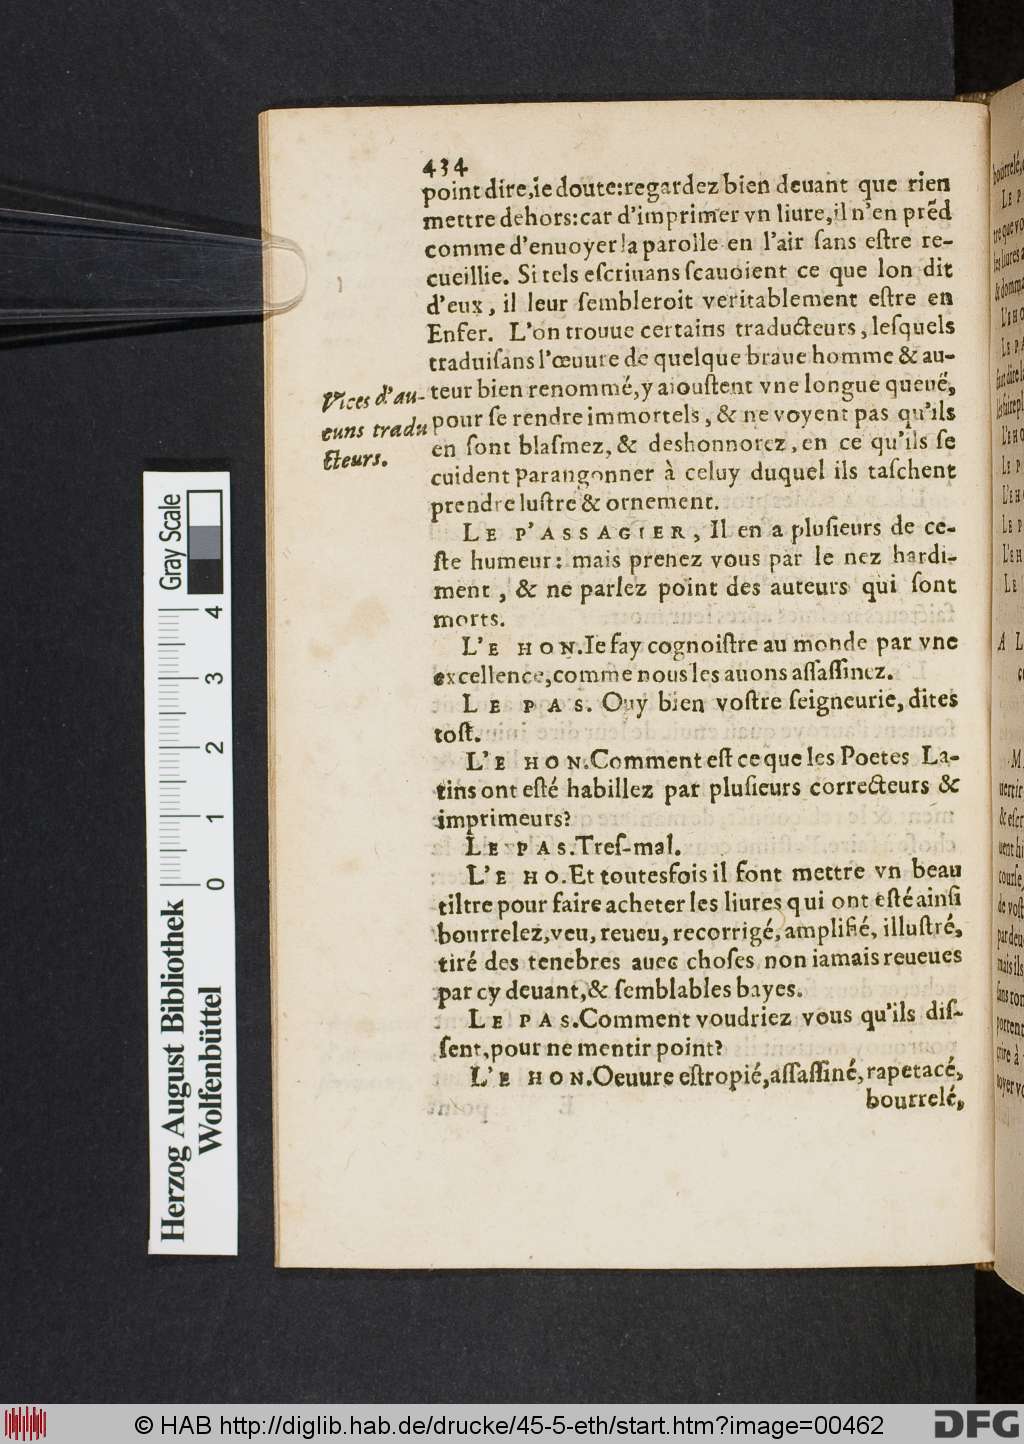 434
point dire,ie doute:regardez bien deuant que rien
mettre dehors:car d'imprimer vn liure,il n'en prẽd
comme d'enuoyer la parolle en l'air ſans eſtre re-
cueillie. Si tels eſcriuans ſcauoient ce que lon dit
d'eux, il leur ſembleroit veritablement eſtre en
Enfer. L'on trouue certains traducteurs, leſquels
traduiſans l'œuure de quelque braue homme & au-
teur bien renommé,y aiouſtent vne longue queuë,
pour ſe rendre immortels, & ne voyent pas qu'ils
en ſont blaſmez, & deshonnorez, en ce qu'ils ſe
cuident parangonner à celuy duquel ils taſchent
prendre luſtre & ornement.
Vices d'au-
cuns tradu
cteurs.
LE P'ASSAGIER, Il en a pluſieurs de ce-
ſte humeur: mais prenez vous par le nez hardi-
ment, & ne parlez point des auteurs qui ſont
morts.
L'E HON.Ie fay cognoiſtre au monde par vne
excellence,comme nous les auons aſſaſſinez.
LE PAS. Ouy bien voſtre ſeigneurie, dites
toſt.
L'E HON.Comment eſt ce que les Poetes La-
tins ont eſté habillez par pluſieurs correcteurs &
imprimeurs?
LE PAS.Treſ-mal.
L'E HO.Et toutesfois il font mettre vn beau
tiltre pour faire acheter les liures qui ont eſté ainſi
bourrelez,veu, reueu, recorrigé, amplifié, illuſtré,
tiré des tenebres auec choſes non iamais reueues
par cy deuant,& ſemblables bayes.
LE PAS.Comment voudriez vous qu'ils diſ-
ſent,pour ne mentir point?
L'E HON.Oeuure eſtropié,aſſaſſiné,rapetacé,
bourrelé,
Gray Scale
4
3
2
1
0
Herzog August Bibliothek
Wolfenbüttel
© HAB http://diglib.hab.de/drucke/45-5-eth/start.htm?image=00462
DFG